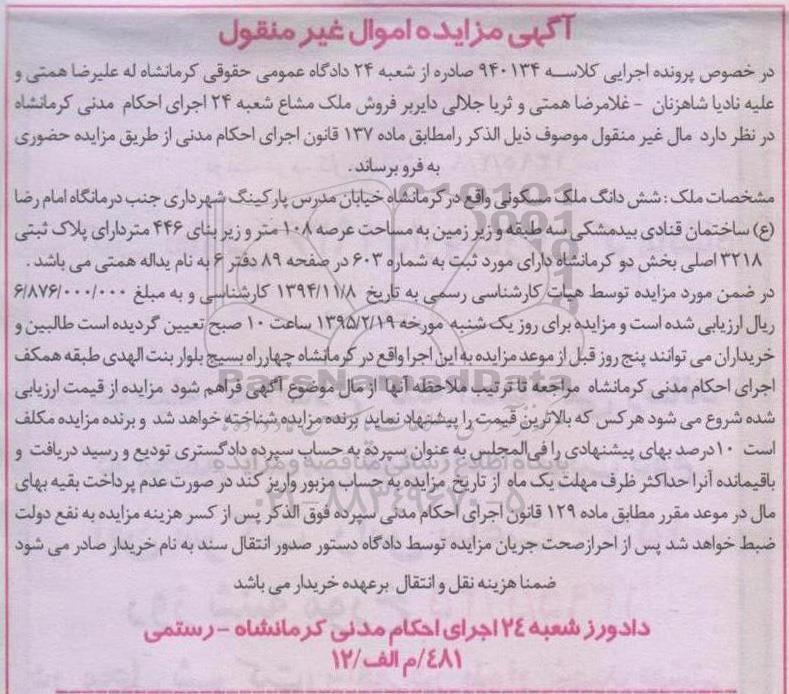 آگهی مزایده اموال غیر منقول
در خصوص پرونده اجرایی کلاسه ۹۴۰۱۳۴ صادره از شعبه ۲۴ دادگاه عمومی حقوقی کرمانشاه له علیرضا همتی و
علیه نادیا شاهزنان - غلامرضا همتی و ثریا جلالی دایربر فروش ملک مشاع شعبه ۲۴ اجرای احکام مدنی کرمانشاه
در نظر دارد مال غیر منقول موصوف ذیل الذکر رامطابق ماده ۱۳۷ قانون اجرای احکام مدنی از طریق مزایده حضوری
به فرو برساند.
مشخصات ملک : شش دانگ ملک مسکونی واقع در کرمانشاه خیابان مدرس پارکینگ شهرداری جنب درمانگاه امام رضا
(ع) ساختمان قنادی بیدمشکی سه طبقه و زیر زمین به مساحت عرصه ۱۰۸ متر و زیر بنای ۴۴۶ متردارای پلاک ثبتی
۳۲۱۸ اصلی بخش دو کرمانشاه دارای مورد ثبت به شماره ۶۰۳ در صفحه ۸۹ دفتر ۶ به نام یداله همتی می باشد .
در ضمن مورد مزایده توسط هیات کارشناسی رسمی به تاریخ ۱۳۹۴/۱۱/۸ کارشناسی و به مبلغ ۶/۸۷۶/۰۰۰/۰۰۰
ریال ارزیابی شده است و مزایده برای روز یک شنبه مورخه ۱۳۹۵/۲/۱۹ ساعت ۱۰ صبح تعیین گردیده است طالبین و
خریداران می توانند پنج روز قبل از موعد مزایده به این اجرا واقع در کرمانشاه چهارراه بسیج بلوار بنت الهدی طبقه همکف
اجرای احکام مدنی کرمانشاه مراجعه تا ترتیب ملاحظه آنها از مال موضوع آگهی فراهم شود مزایده از قیمت ارزیابی
شده شروع می شود هر کس که بالاترین قیمت را پیشنهاد نماید برنده مزایده شناخته خواهد شد و برنده مزایده مکلف
است ۱۰درصد بهای پیشنهادی را فی‌المجلس به عنوان سپرده به حساب سپرده دادگستری تودیع و رسید دریافت و
باقیمانده آنرا حداکثر ظرف مهلت یک ماه از تاریخ مزایده به حساب مزبور واریز کند در صورت عدم پرداخت بقیه بهای
مال در موعد مقرر مطابق ماده ۱۲۹ قانون اجرای احکام مدنی سپرده فوق الذکر پس از کسر هزینه مزایده به نفع دولت
ضبط خواهد شد پس از احرازصحت جریان مزایده توسط دادگاه دستور صدور انتقال سند به نام خریدار صادر می شود
ضمنا هزینه نقل و انتقال برعهده خریدار می باشد
دادورز شعبه ۲۴ اجرای احکام مدنی کرمانشاه - رستمی
۴۸۱/م الف/۱۲
ParsNamadData
پایگاه اطلاع رسانی مناقصه و مزایده
۰۲۱-۸۸۳۴۹۶۷۰-۵